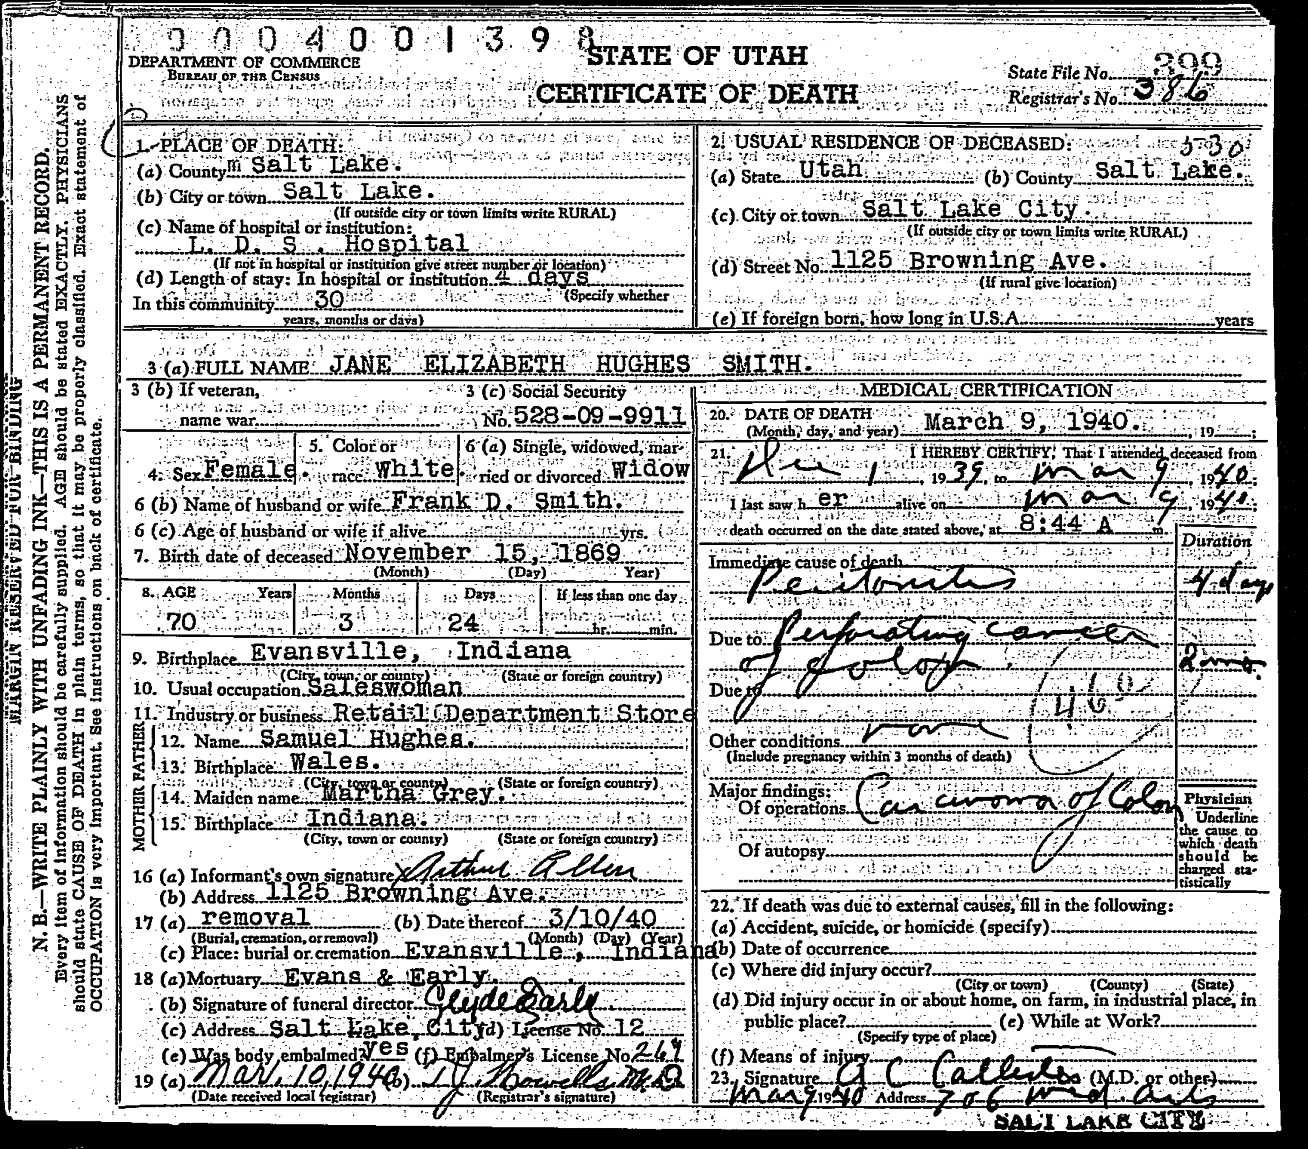 0004001398
STATE OF UTAH
CERTIFICATE OF DEATH
DEPARTMENT OF COMMERCE
BUREAU OF THE CENSUS
State File No. 399
Registrar's No. 386
MARGIN RESERVED FOR BINDING
N. B.—WRITE PLAINLY WITH UNFADING INK—THIS IS A PERMANENT RECORD.
Every item of information should be carefully supplied. AGE should be stated EXACTLY. PHYSICIANS
should state CAUSE OF DEATH in plain terms, so that it may be properly classified. Exact statement of
OCCUPATION is very important. See instructions on back of certificate.
1. PLACE OF DEATH:
(a) County Salt Lake.
(b) City or town Salt Lake.
(If outside city or town limits write RURAL)
(c) Name of hospital or institution:
L. D. S. Hospital
(If not in hospital or institution give street number or location)
(d) Length of stay: In hospital or institution 4 days
(Specify whether
In this community 30
years, months or days)
2. USUAL RESIDENCE OF DECEASED: 530
(a) State Utah (b) County Salt Lake.
(c) City or town Salt Lake City.
(If outside city or town limits write RURAL)
(d) Street No. 1125 Browning Ave.
(If rural give location)
(e) If foreign born, how long in U.S.A. years
3 (a) FULL NAME JANE ELIZABETH HUGHES SMITH.
3 (b) If veteran,
name war
3 (c) Social Security
No. 528-09-9911
4. Sex Female. 5. Color or race White. 6 (a) Single, widowed, married or divorced Widow
6 (b) Name of husband or wife Frank D. Smith.
6 (c) Age of husband or wife if alive yrs.
7. Birth date of deceased November 15, 1869
(Month) (Day) Year)
8. AGE Years Months Days If less than one day
70 3 24 hr. min.
9. Birthplace Evansville, Indiana
(City, town, or county) (State or foreign country)
10. Usual occupation Saleswoman
11. Industry or business Retail Department Store
FATHER
12. Name Samuel Hughes.
13. Birthplace Wales.
(City, town or county) (State or foreign country)
MOTHER
14. Maiden name Martha Grey.
15. Birthplace Indiana.
(City, town or county) (State or foreign country)
16 (a) Informant's own signature Arthur Allen
(b) Address 1125 Browning Ave.
17 (a) removal (b) Date thereof 3/10/40
(Burial, cremation, or removal) (Month) (Day) (Year)
(c) Place: burial or cremation Evansville, Indiana
18 (a) Mortuary Evans & Early
(b) Signature of funeral director Clyde Early
(c) Address Salt Lake City (d) License No. 12
(e) Was body embalmed? yes (f) Embalmer's License No. 267
19 (a) Mar. 10, 1940 (b) T J Howells M.D
(Date received local registrar) (Registrar's signature)
MEDICAL CERTIFICATION
20. DATE OF DEATH
(Month, day, and year) March 9, 1940. , 19 ;
21. I HEREBY CERTIFY, That I attended deceased from
Dec 1, 1939, to Mar 9, 1940;
I last saw her alive on Mar 9, 1940;
death occurred on the date stated above, at 8:44 A m.
Duration
Immediate cause of death
Peritonitis 4 days
Due to Perforating cancer
of Colon 2 mo.
Due to
460
Other conditions none
(Include pregnancy within 3 months of death)
Major findings:
Of operations Carcinoma of Colon
Of autopsy
Physician
Underline
the cause to
which death
should be
charged sta-
tistically
22. If death was due to external causes, fill in the following:
(a) Accident, suicide, or homicide (specify)
(b) Date of occurrence
(c) Where did injury occur?
(City or town) (County) (State)
(d) Did injury occur in or about home, on farm, in industrial place, in
public place? (e) While at Work?
(Specify type of place)
(f) Means of injury
23. Signature A C Callister (M.D. or other)
Mar 9 1940 Address 706 Med. Arts
SALT LAKE CITY